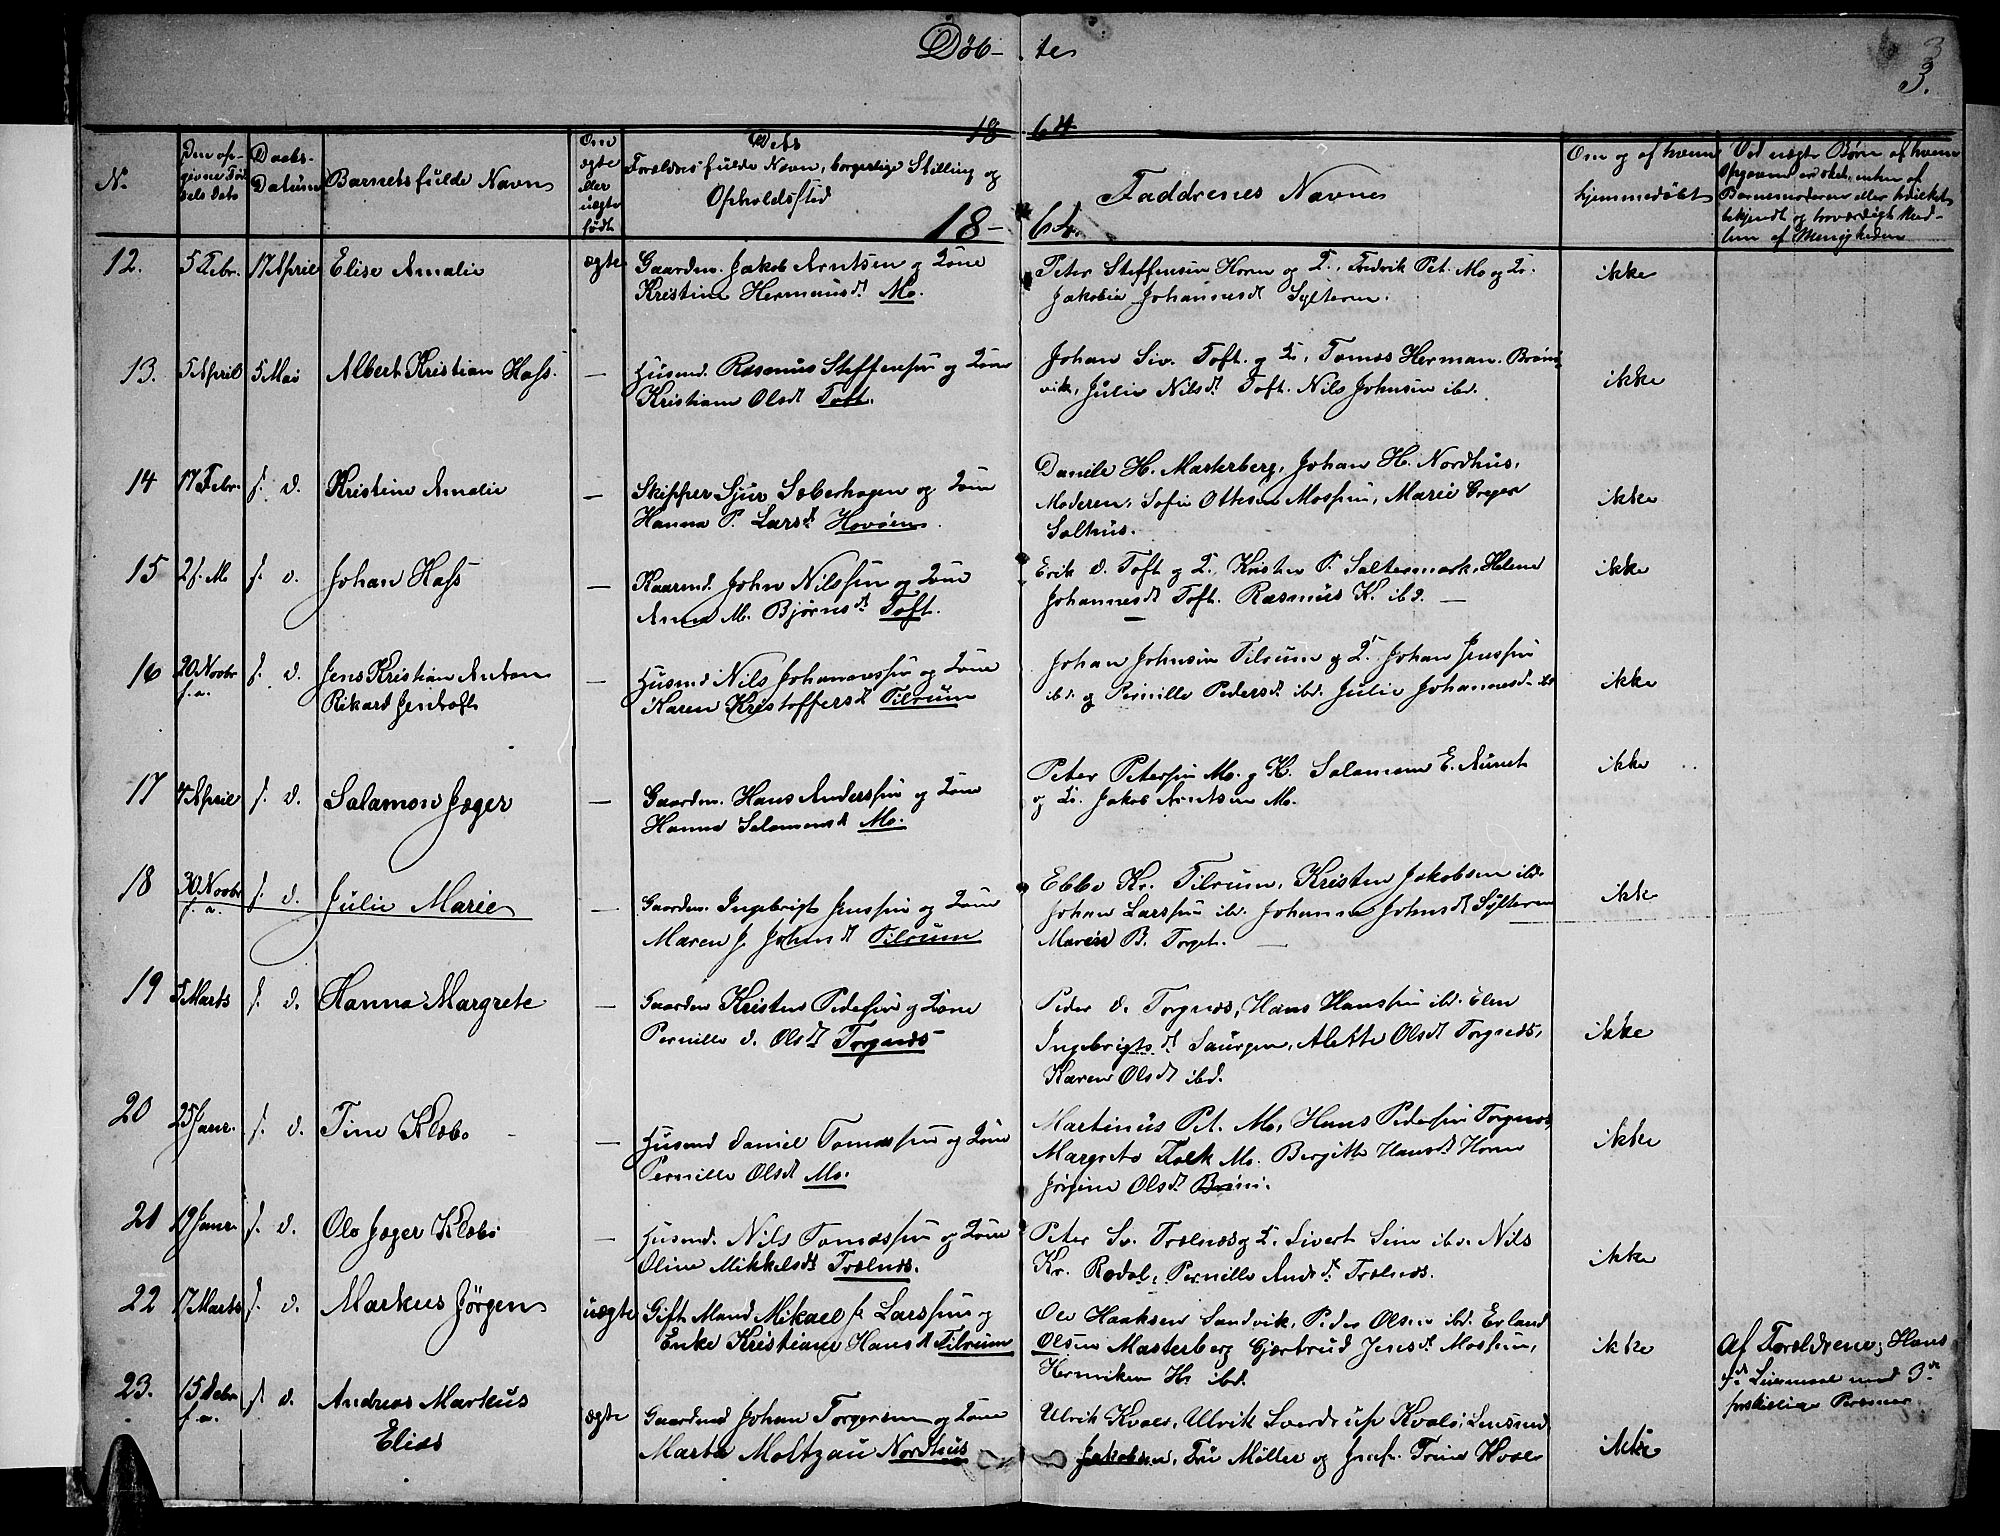 Döb- te
3
3.
18 64
N.
Den op-
givne Fö-
dels Dato
Daabs-
Datum
Barnets fulde Navn
Om
ægte
eller
uægte
født
Dets
Forældres fulde Navn, borgerlige Stilling og
Opholdssted
Faddrenes Navne
Om og af hvem
hjemmedöbt
Ved uægte Børn af hvem
Opgaven er sket, enten af
Barnemoderen eller hvilket
bekjendt og troværdigt Med-
lem af Menigheden
18- 64.
12. 5 Febr. 17 April Elise Amalie ægte Gaardm. Jakob Arntsen og Kone
Kristine Hermansdt Mo.
Peter Steffensen Horn og K., Fredrik Pet. Mo og K.
Jakobia Johannesdt Sylteren.
ikke
13. 5 April 5 Mai Albert Kristian Hass. — Husmd. Rasmus Steffensen og Kone
Kristiane Olsdt Toft.
Johan Siv. Toft. og K., Tomas Herman. Brøns-
vik, Julie Nilsdt Toft. Nils Johnsen ibd.
ikke
14 17 Febr. s. d. Kristine Amalie — Skipper Sjur Soberhagen og Kone
Hanna P. Larsdt Havöen.
Daniel H. Masterberg, Johan H. Nordhus,
Moderen, Sofie Ottesen Mossem, Marie Greger
Salhus.
ikke
15 2 s. M. s. d. Johan Hass — Kaarmd. John Nilssen og Kone
Anne M. Bjørnsdt Toft.
Erik d. Toft og K. Kristen P. Saltermark, Helene
Johannesdt Toft. Rasmus K. ibd. —
ikke
16 20 Novbr.
f. a. s. d. Jens Kristian Anton
Rikard Jentoft — Husmd Nils Johannessen og Kone
Karen Kristoffersdt Tilrum
Johan Johnsen Tilrum og K. Johan Jenssen
ibd. og Pernille Pedersdt ibd. Julie Johannesdt ibd
ikke
17 4 April s. d. Salamon Jæger — Gaardm. Hans Anderssen og Kone
Hanna Salamonsdt Mo.
Peter Peterssen Mo. og K. Salamon E. Aunet
og K. Jakob Arntsen Mo.
ikke
18 30 Novbr
f. a. s. d. Julie Marie — Gaardm. Ingebrigt Jenssen og Kone
Maren J. Johnsdt Tilrum
Ebbe Kr. Tilrum, Kristen Jakobsen ibd.
Johan Larssen ibd. Johanna Johnsdt Sylteren
Maren B. Torget. —
ikke
19 5 Marts s. d. Hanna Margrete — Gaardm Kristen Pedersen og Kone
Pernille d. Olsdt Torgnæs
Peder d. Torgnæs, Hans Hanssen ibd. Elen
Ingebrigtsdt Saurgen, Alette Olsdt Torgnæs,
Karen Olsdt ibd.
ikke
20 25 Janr. s. d. Tine Klæbo — Husmd Daniel Tomassen og Kone
Pernille Olsdt Mo.
Martinus Pet. Mo, Hans Pedersen Torgnæs,
Margrete Falk Mo. Bergitte Hansdt Horn
Jörgine Olsdt
ikke
21 19 Janr s. d. Ole Jæger Klæbo — Husmd. Nils Tomassen og Kone
Oline Mikkelsdt Trælnæs.
Peter Sv. Trælnæs og K. Sivert Sim ibd. Nils
Kr. Rodal, Pernille Andsdt Trælnæs.
ikke
22 17 Marts s. d. Markus Jörgen uægte Gift Mand Mikael J. Larssen og
Enke Kristiane Hansdt Tilrum
Ole Haaksen Sandvik, Peder Olsen ibd. Erland
Olsen Masterberg Gjærtrud Jensdt Mossem,
Henriken H. ibd.
ikke
Af Forældrene; Hans
Leiermaal med 3de
forskjellige Personer.
23. 15 Debr
f. a. s. d. Andreas Markus
Elias ægte Gaardmd Johan Torgersen og Kone
Marta Moltzau Nordhus
Ulrik Kvale, Ulrik Sverdrup Kvalø, Lensmd
Jakobsen, Fru Møller og Jomf. Trine Kvale
ikke